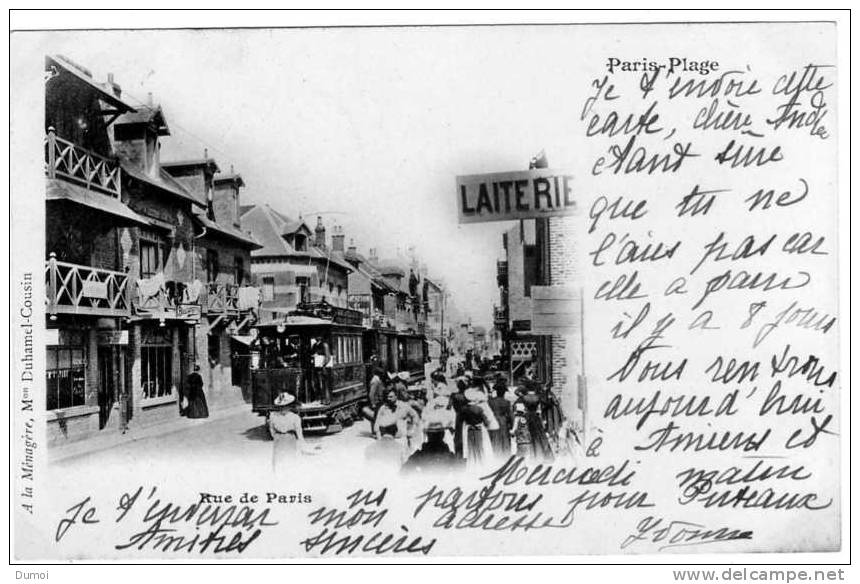 Paris-Plage
Je t'envoie cette
carte, chère
étant sûre
que tu ne
l'aies pas car
elle a paru
il y a 8 jours
Nous rentrons
aujourd'hui
à Amiens et
Mercredi matin
nous partons pour Puteaux
Je t'enverrai mon adresse
Amitiés sincères
Yvonne
LAITERIE
Rue de Paris
A la Ménagère, Mon Duhamel-Cousin
Dumoi
delcampe.net